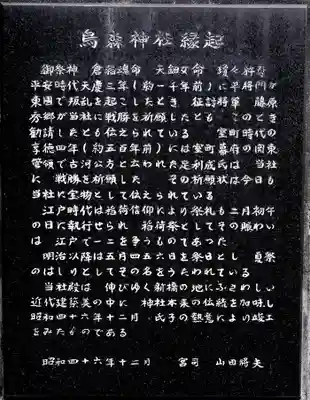 烏森神社縁起
御祭神 倉稲魂命 天鈿女命 瓊々杵尊
平安時代天慶三年(約一千年前)に平将門が
東国で叛乱を起こしたとき 征討将軍 藤原
秀郷が当社に戦勝を祈願した このとき
勧請したとも伝えられている 室町時代の
享徳四年(約五百年前)には室町幕府の関東
管領で古河公方と云われた足利成氏 当社
に 戦勝を祈願し その祈願状は今日も
当社に宝物として伝えられている
江戸時代は稲荷信仰により祭礼も二月初午
の日に執行せられ 稲荷祭としてその賑わい
は 江戸で一二を争うものであった
明治以降は五月四五六日を祭日とし 夏祭
のはしりとしてその名をうたわれている
当社殿は 伸びゆく新橋の地にふさわしい
近代建築美の中に 神社本来の伝統を加味し
昭和四十六年十二月 氏子の熱意により竣工
をみたものである
昭和四十六年十二月 宮司 山田将夫